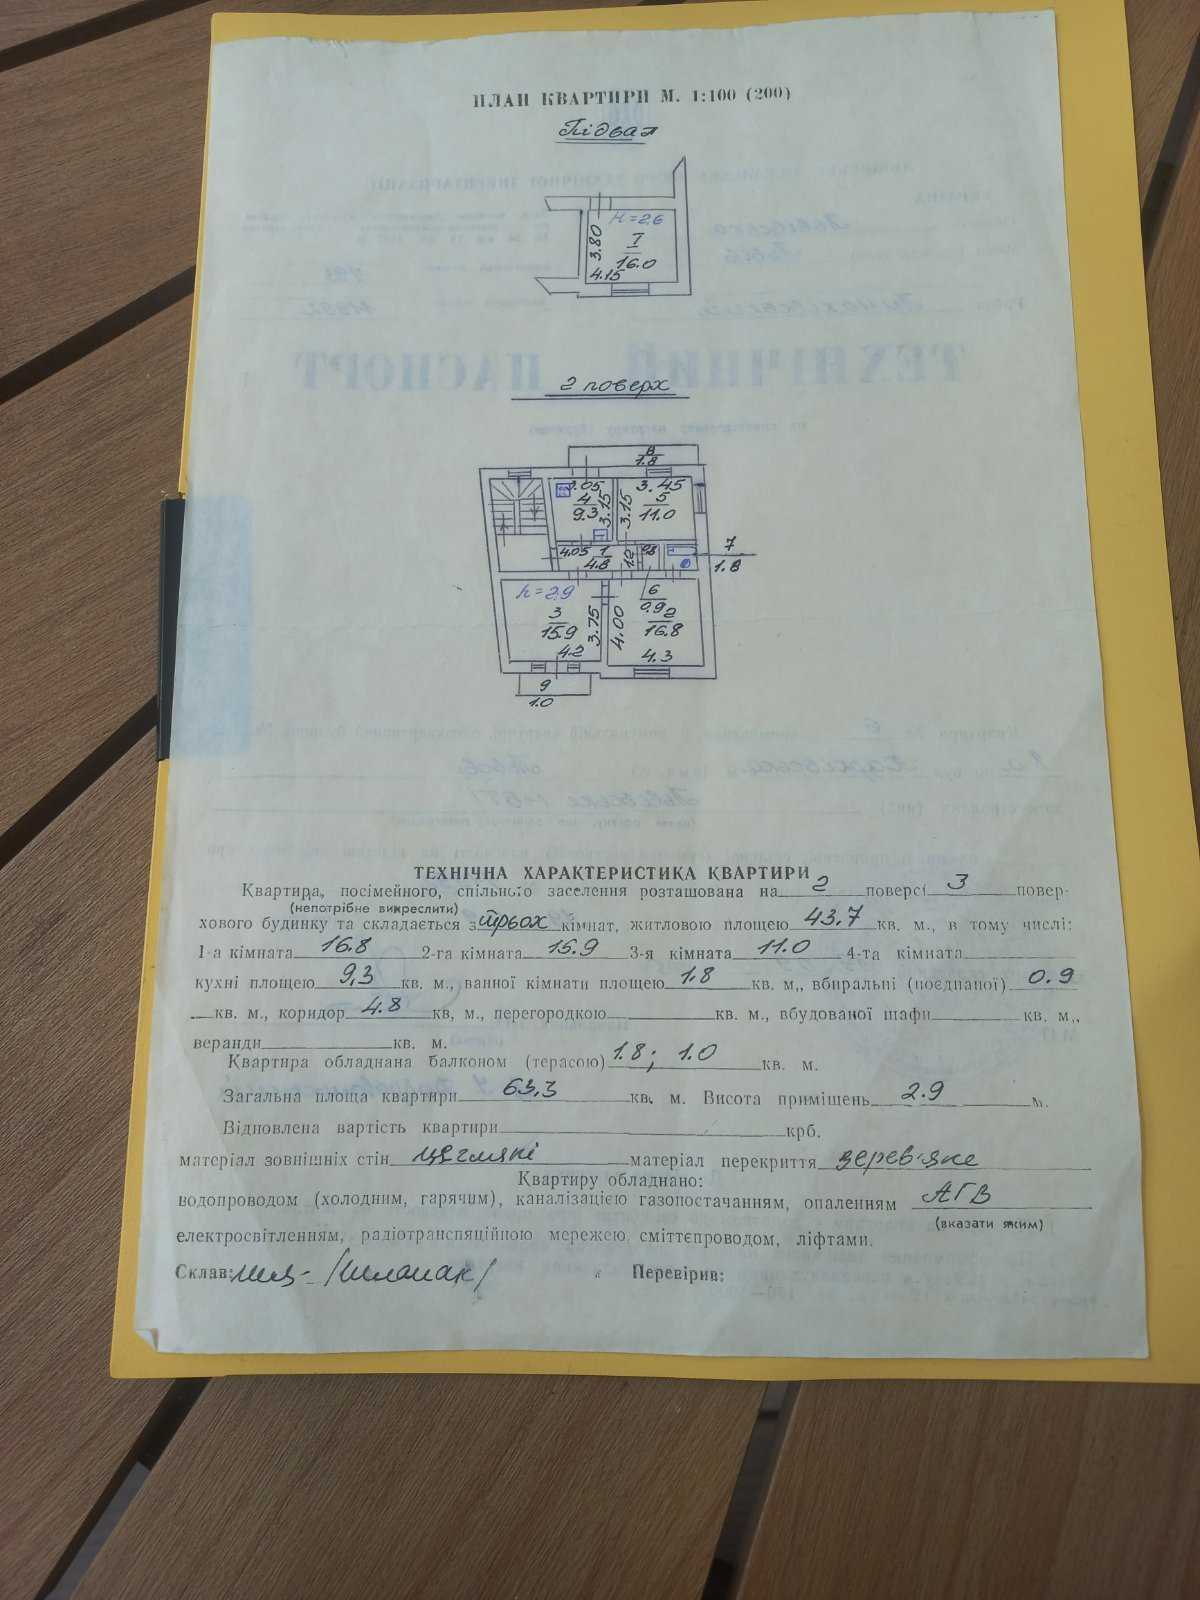 ПЛАН КВАРТИРИ М. 1:100 (200)
Підвал
H=2.6
I
16.0
3.80
4.15
2 поверх
8
1.8
3.05
4
9.3
3.15
3.45
5
11.0
3.15
4.05
1
4.8
1.2
0.8
7
1.8
h=2.9
3
15.9
3.75
4.2
6
0.9
2
16.8
4.00
4.3
9
1.0
ТЕХНІЧНА ХАРАКТЕРИСТИКА КВАРТИРИ
Квартира, посімейного, спільного заселення розташована на 2 поверсі 3 повер-
(непотрібне викреслити)
хового будинку та складається з трьох кімнат, житловою площею 43,7 кв. м., в тому числі:
1-а кімната 16.8 2-га кімната 15.9 3-я кімната 11.0 4-та кімната
кухні площею 9,3 кв. м., ванної кімнати площею 1.8 кв. м., вбиральні (поєднаної) 0.9
кв. м., коридор 4.8 кв, м., перегородкою кв. м., вбудованої шафи кв. м.,
веранди кв. м.
Квартира обладнана балконом (терасою) 1.8; 1.0 кв. м.
Загальна площа квартири 63,3 кв. м. Висота приміщень 2.9 м.
Відновлена вартість квартири крб.
матеріал зовнішніх стін цегляні матеріал перекриття дерев'яне
Квартиру обладнано:
водопроводом (холодним, гарячим), каналізацією газопостачанням, опаленням АГВ
(вказати яким)
електросвітленням, радіотрансляційною мережею, сміттєпроводом, ліфтами.
Склав: Перевірив:
ТЕХНІЧНИЙ ПАСПОРТ